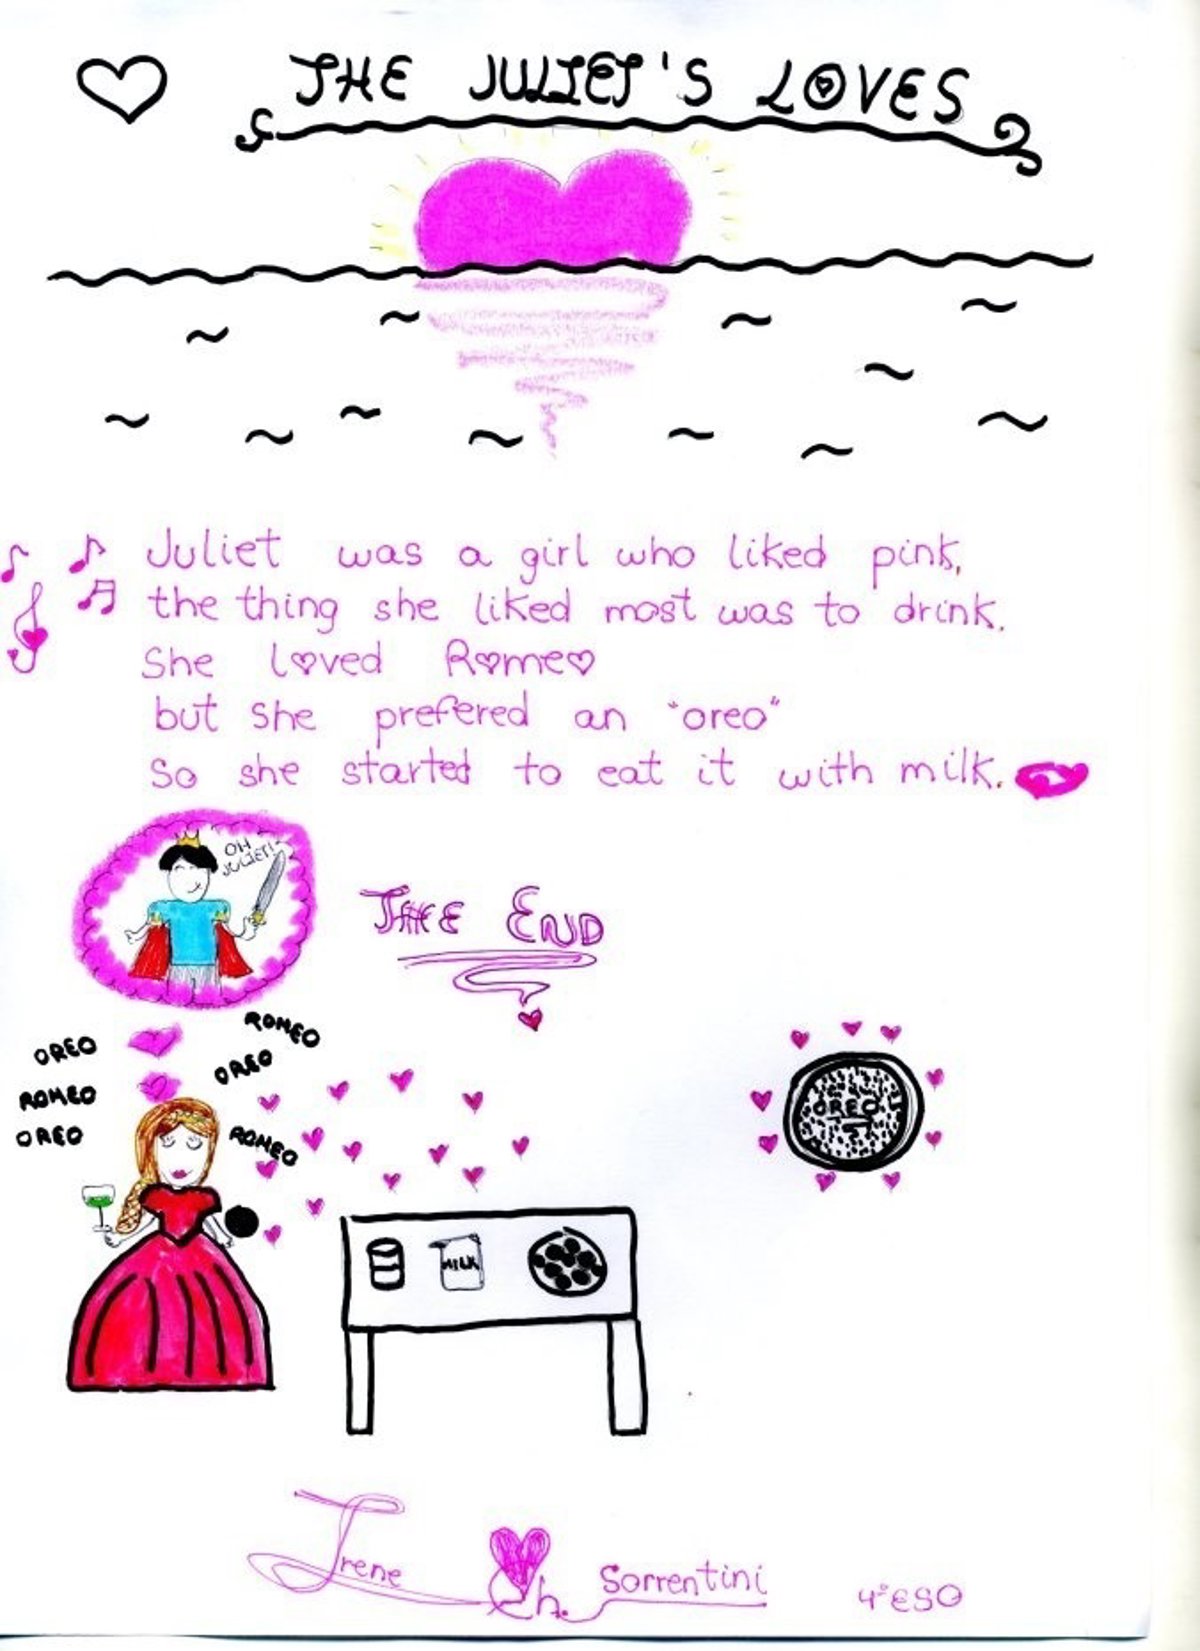 THE JULIET'S LOVES
Juliet was a girl who liked pink,
the thing she liked most was to drink.
She loved Romeo
but she prefered an "oreo"
So she started to eat it with milk.
OH
JULIET!
THE END
ROMEO
OREO
OREO
ROMEO
OREO
ROMEO
OREO
MILK
Irene Ch. Sorrentini
4º ESO